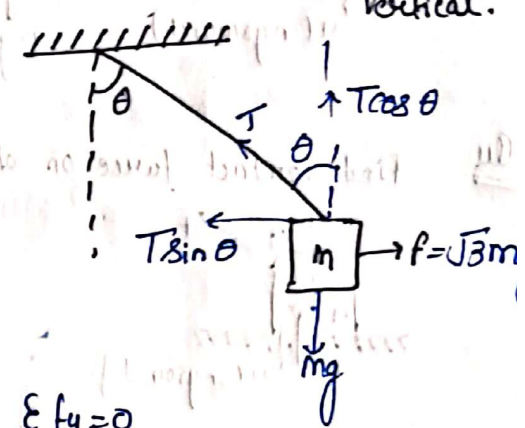 vertical.
θ
T
θ
Tcos θ
Tsin θ
m
f=√3m
mg
Σfy=0